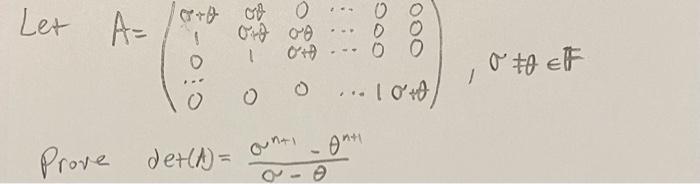 Let A= ( σ+θ σθ 0 ... 0 0
1 σ+θ σθ ... 0 0
0 1 σ+θ ... 0 0
...
0 0 0 ... 1 σ+θ ) , σ ≠ θ ∈ 𝔽
Prove det(A) = (σⁿ⁺¹ - θⁿ⁺¹) / (σ - θ)